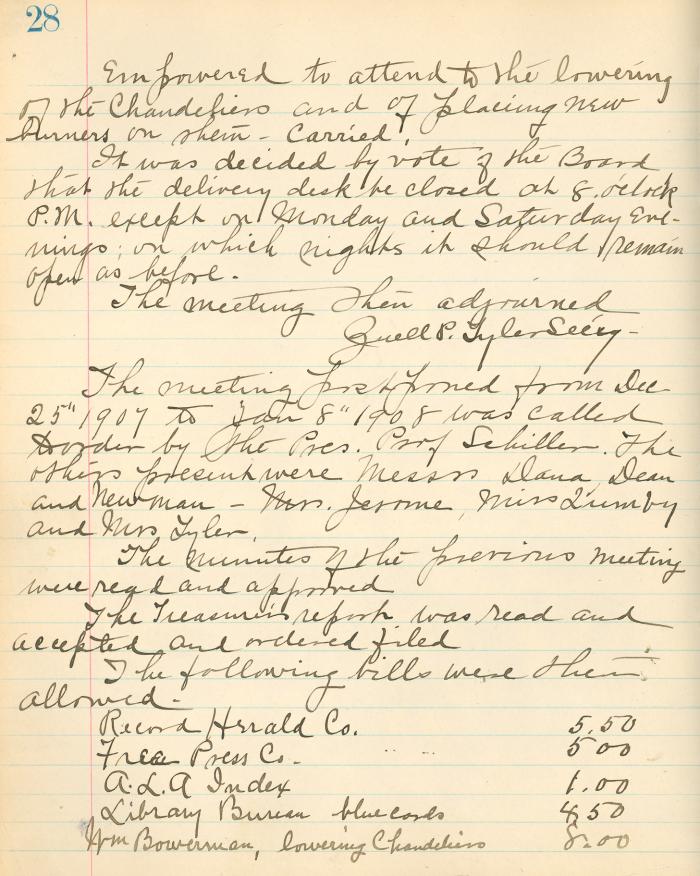 28
Empowered to attend to the lowering
of the Chandeliers and of placing new
burners on them - Carried.
It was decided by vote of the Board
that the delivery desk be closed at 8. o'clock
P.M. except on Monday and Saturday Eve-
nings; on which nights it should remain
open as before.
The meeting then adjourned
P. Tyler Sec'y -
The meeting postponed from Dec
25" 1907 to Jan 8" 1908 was called
to order by the Pres. Prof Schiller. The
others present were Messrs Dana, Dean
and Newman - Mrs. Jerome, Miss Quinby
and Mrs Tyler.
The minutes of the previous meeting
were read and approved
The Treasurer's report was read and
accepted and ordered filed
The following bills were then
allowed -
Record Herald Co. 5.50
Free Press Co. - 5 00
A.L.A Index 1.00
Library Bureau blue cards 4.50
Wm Bowerman, lowering Chandeliers 8.00